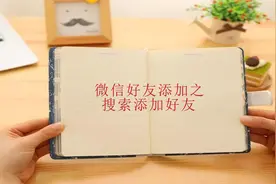 微信好友添加之
搜索添加好友